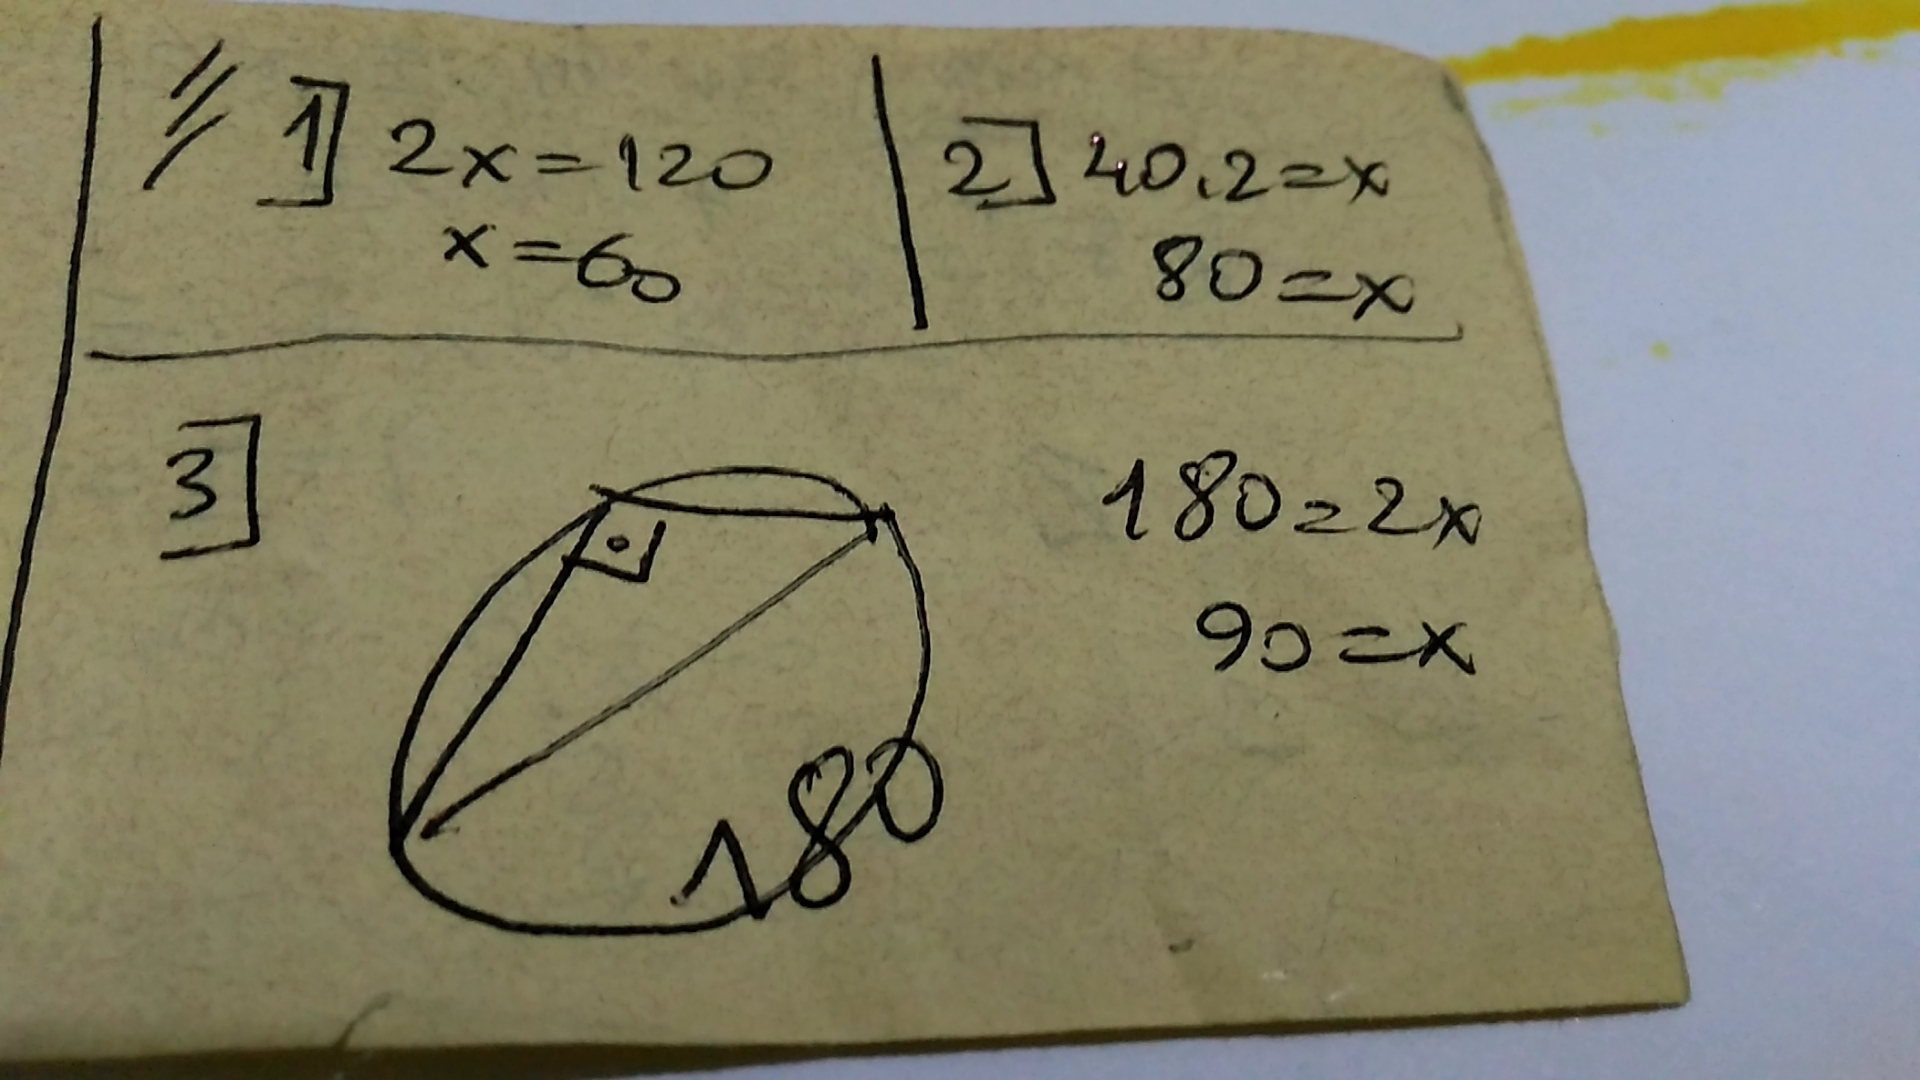 1] 2x=120
x=60
2] 40.2=x
80=x
3]
180=2x
90=x
180